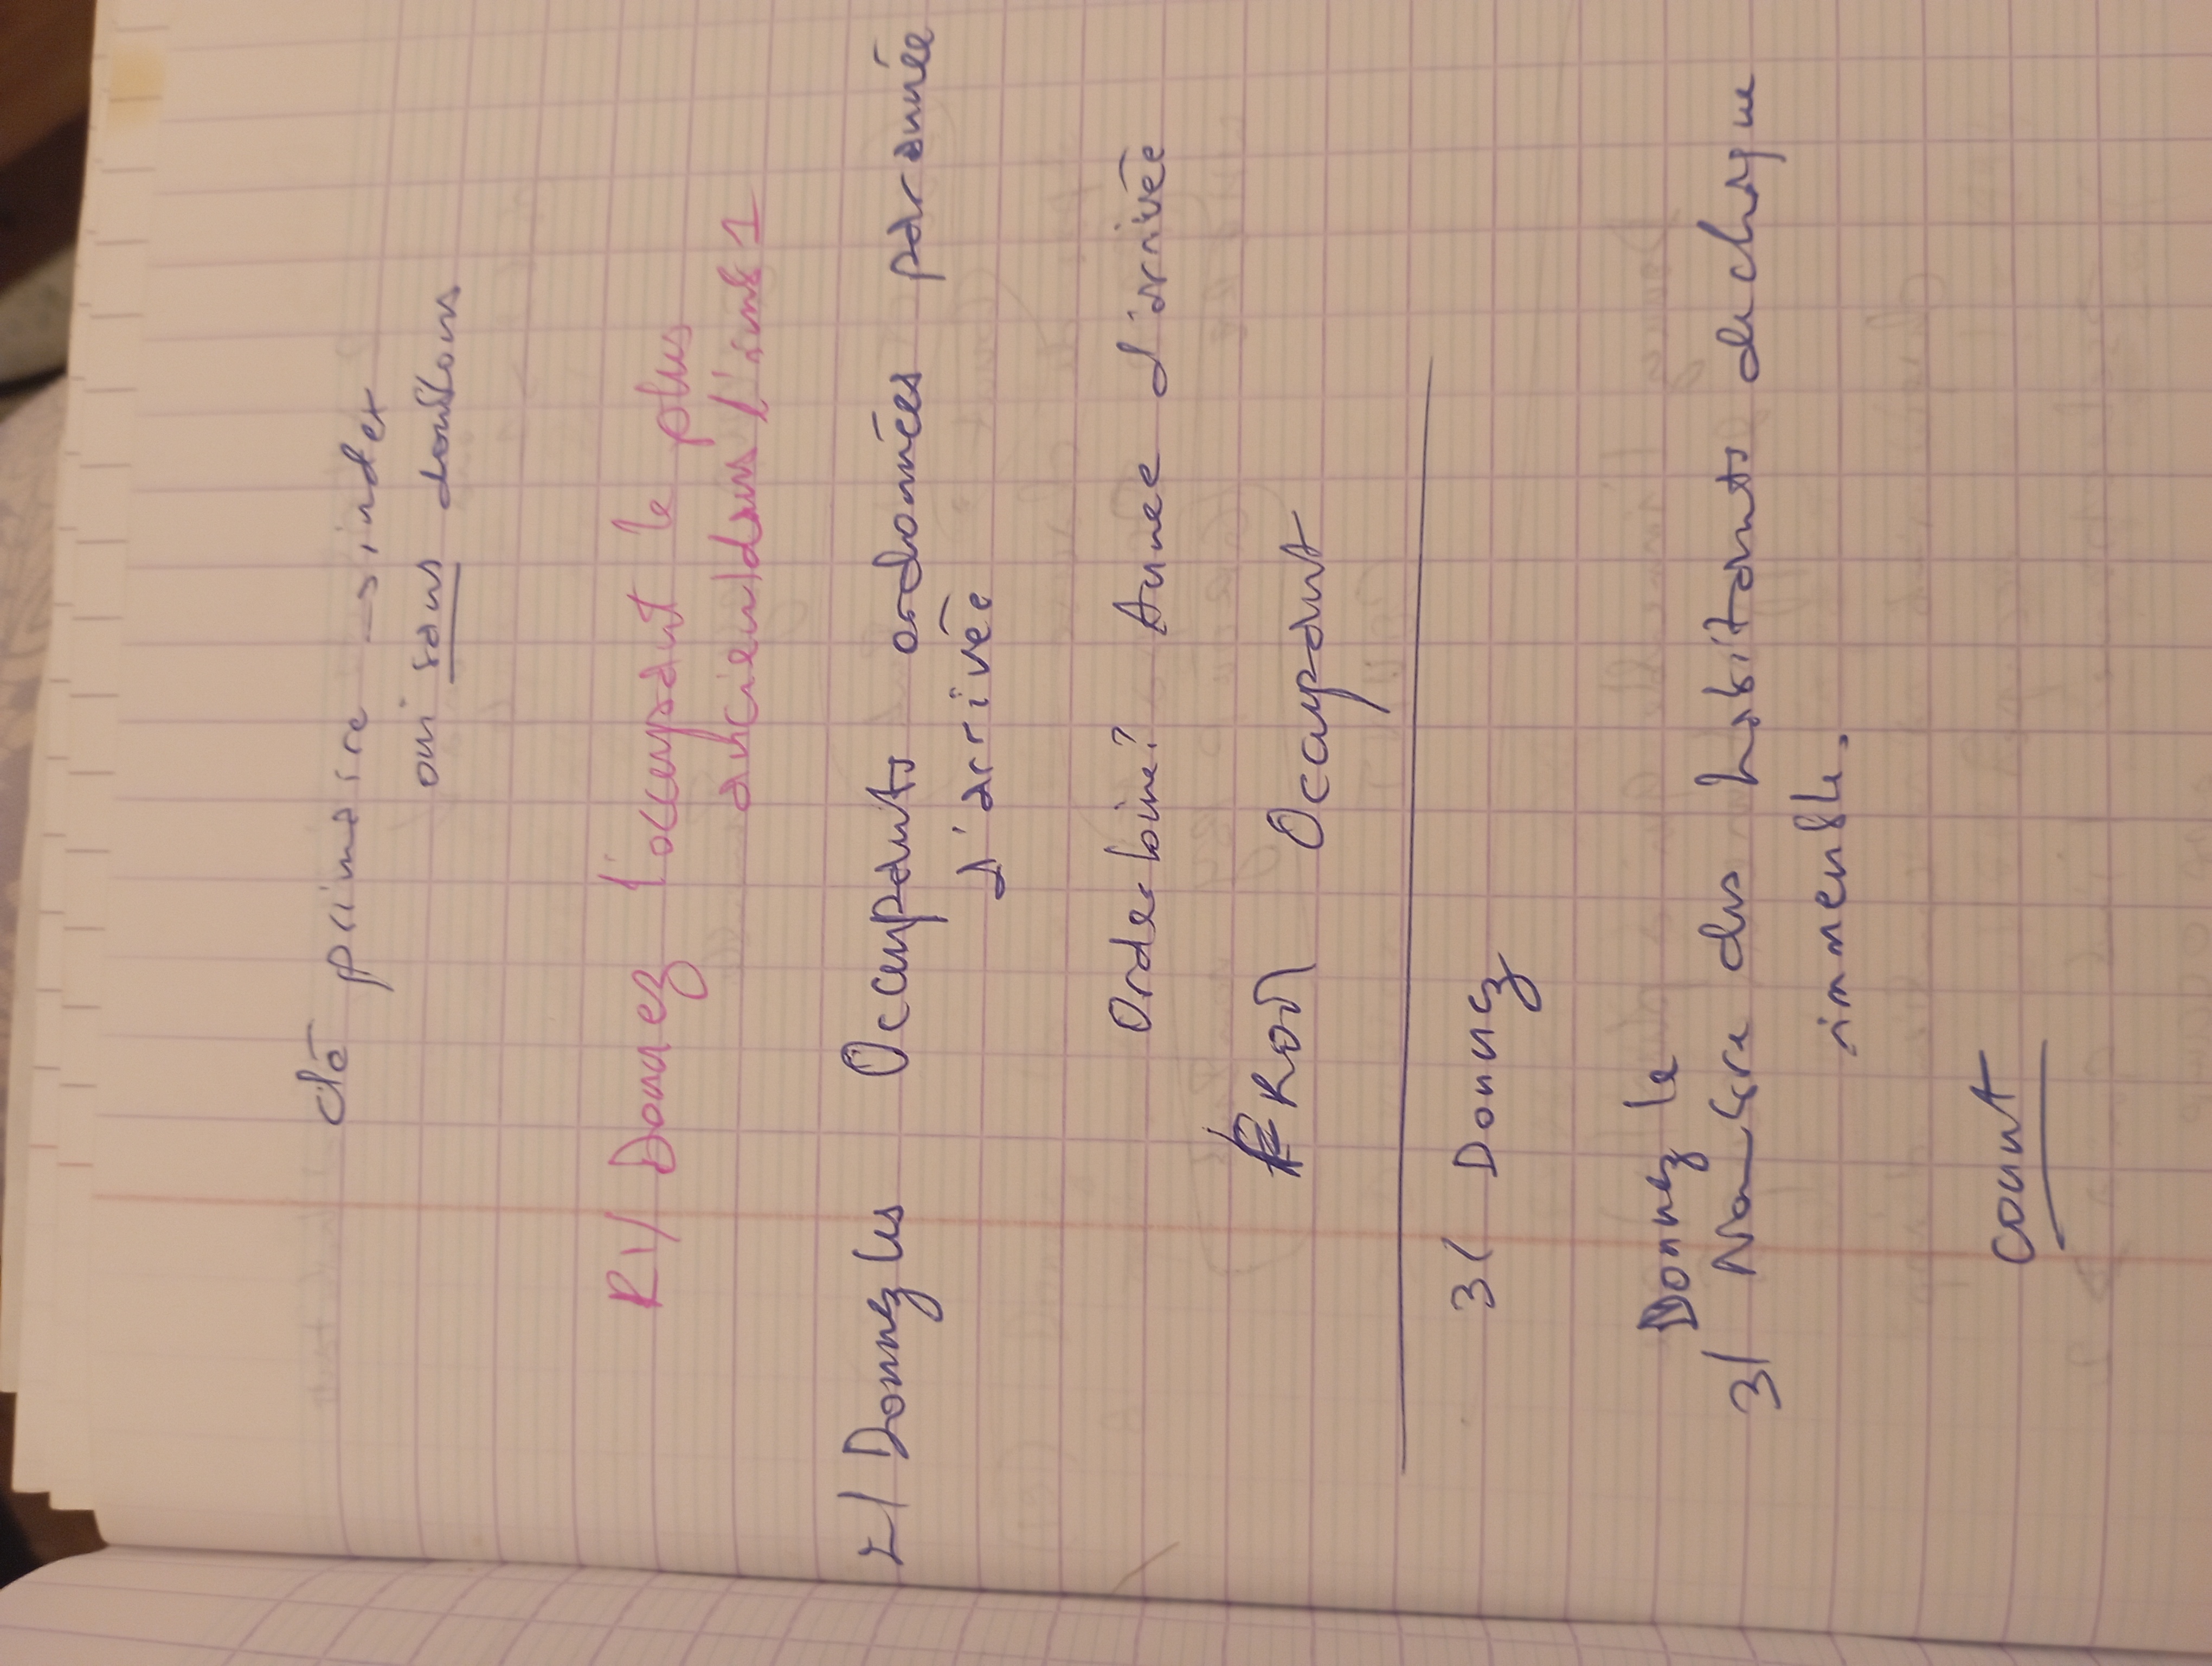 clé primaire → index
oui sans doublons
R1/ Donnez l'occupant le plus
ancien/dans l'imb 1
2/ Donnez les Occupants ordonnées par année
d'arrivée
Order by Annee d'arrivée
From Occupant
3( Donnez
Donnez le
3/ Nombre des habitants de chaque
immeuble.
count